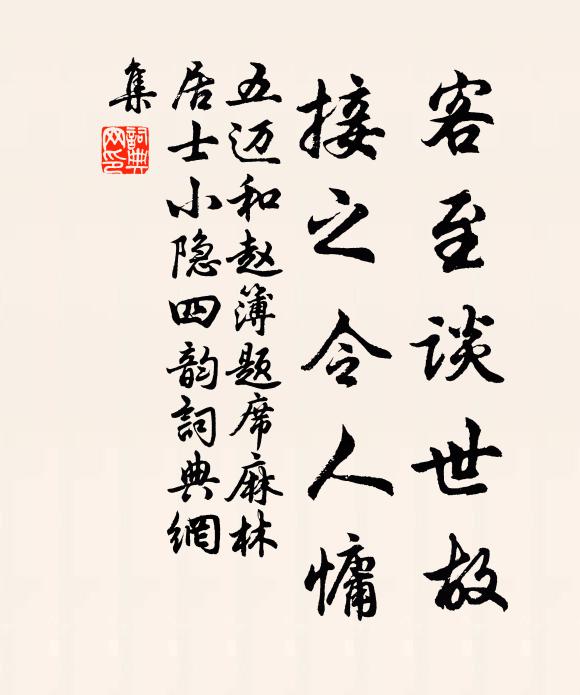 客至谈世故
接之令人慵
五迈和赵簿题席麻林
居士小隐四韵詞典網
集
詞典网印